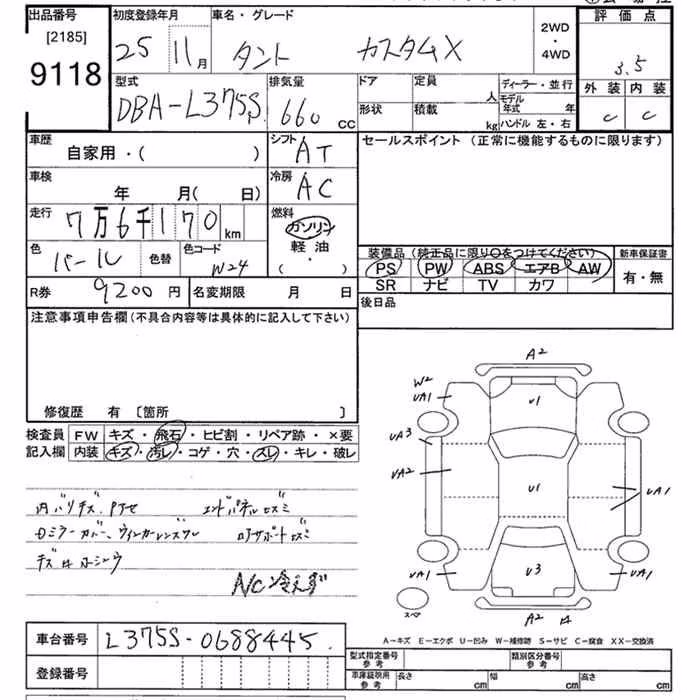 出品番号 初度登録年月 車名・グレード 評価点
[2185] 25 11月 タント カスタムX 2WD・4WD 3.5
9118 型式 排気量 ドア 定員 人 ディーラー・並行 外装 内装
DBA-L375S 660 cc 形状 積載 kg モデル年式 年 ハンドル 左・右 C C
車歴 シフト セールスポイント (正常に機能するものに限ります)
自家用・( ) AT
車検 年 月( 日) 冷房 AC
走行 7万6千170km 燃料 ガソリン
軽油・( )
色 パール 色替 色コード W24
装備品 (純正品に限り○をつけてください) 新車保証書
PS PW ABS エアB AW 有・無
SR ナビ TV カワ
R券 9200円 名変期限 月 日 後日品
注意事項申告欄 (不具合内容等は具体的に記入して下さい)
修復歴 有 [箇所 ]
検査員記入欄 FW キズ・飛石・ヒビ割・リペア跡・×要
内装 キズ・汚レ・コゲ・穴・スレ・キレ・破レ
A2
W2
UA1 U1 UA3 UA2 U1 UA1
UA1 U3 UA1
スペア A2
内バリキズ エンドパネルロスミ
ロミラーカバー、ウィンカーレンズスレ ロアサポートロスミ
NC冷えず
A−キズ E−エクボ U−凹み W−補修跡 S−サビ C−腐食 XX−交換済
車台番号 L375S-0688445
登録番号
型式指定番号 参考 類別区分番号 参考
車庫証明用 参考 長さ cm 幅 cm 高さ cm